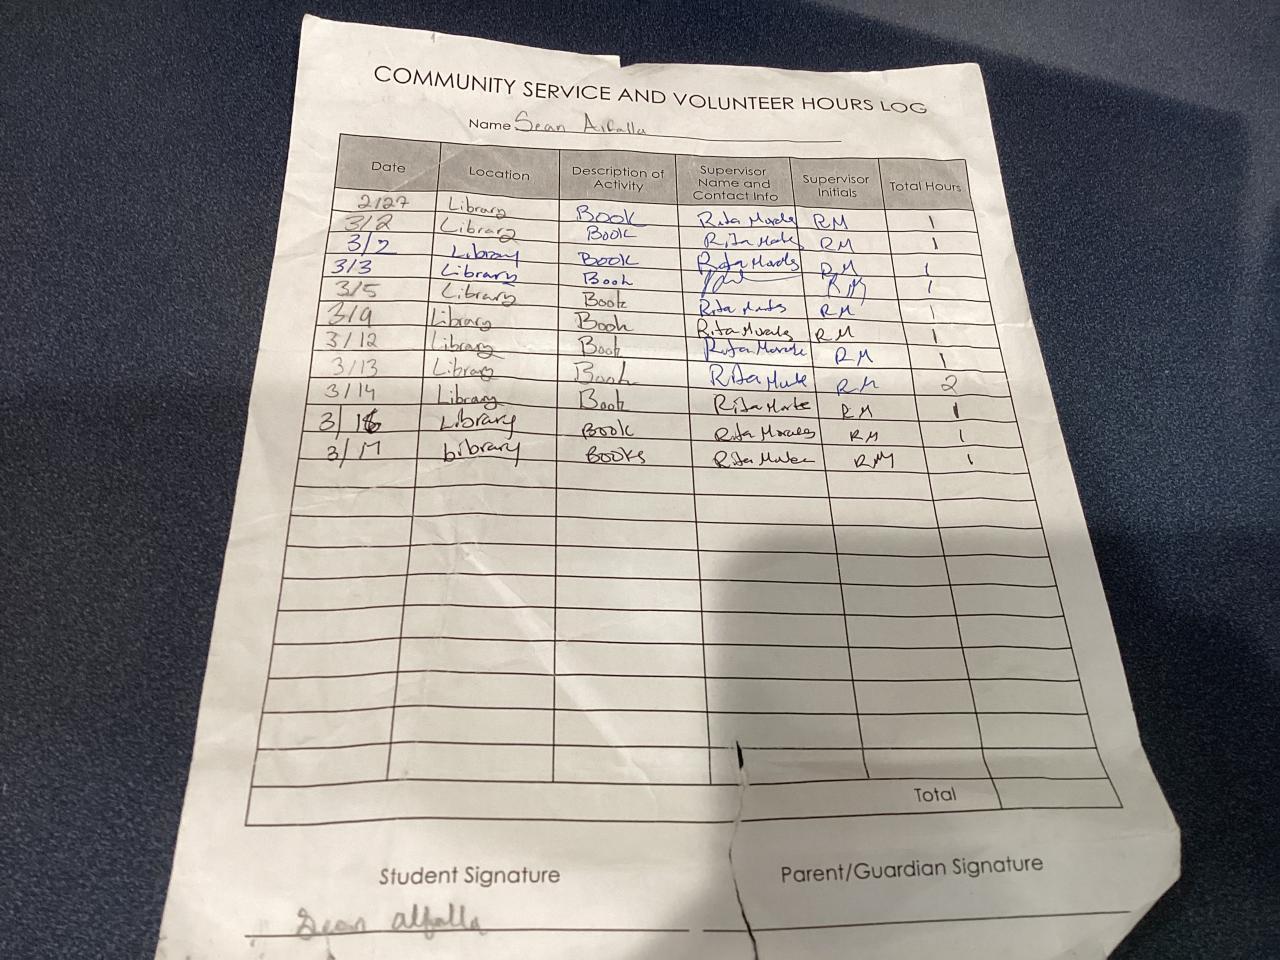 COMMUNITY SERVICE AND VOLUNTEER HOURS LOG
Name Sean Alfalla
Date Location Description of Activity Supervisor Name and Contact Info Supervisor Initials Total Hours
2/27 Library Book Rita Morales RM 1
3/2 Library Book Rita RM 1
3/2 Library Book Rita Morales RM 1
3/3 Library Book RM 1
3/5 Library Book Rita RM 1
3/9 Library Book Rita Morales RM 1
3/12 Library Book Rita Morale RM 1
3/13 Library Book Rita RM 2
3/14 Library Book Rita RM 1
3/16 Library Book Rita Morales RM 1
3/17 Library Books Rita RM 1
Total
Student Signature Parent/Guardian Signature
Sean alfalla